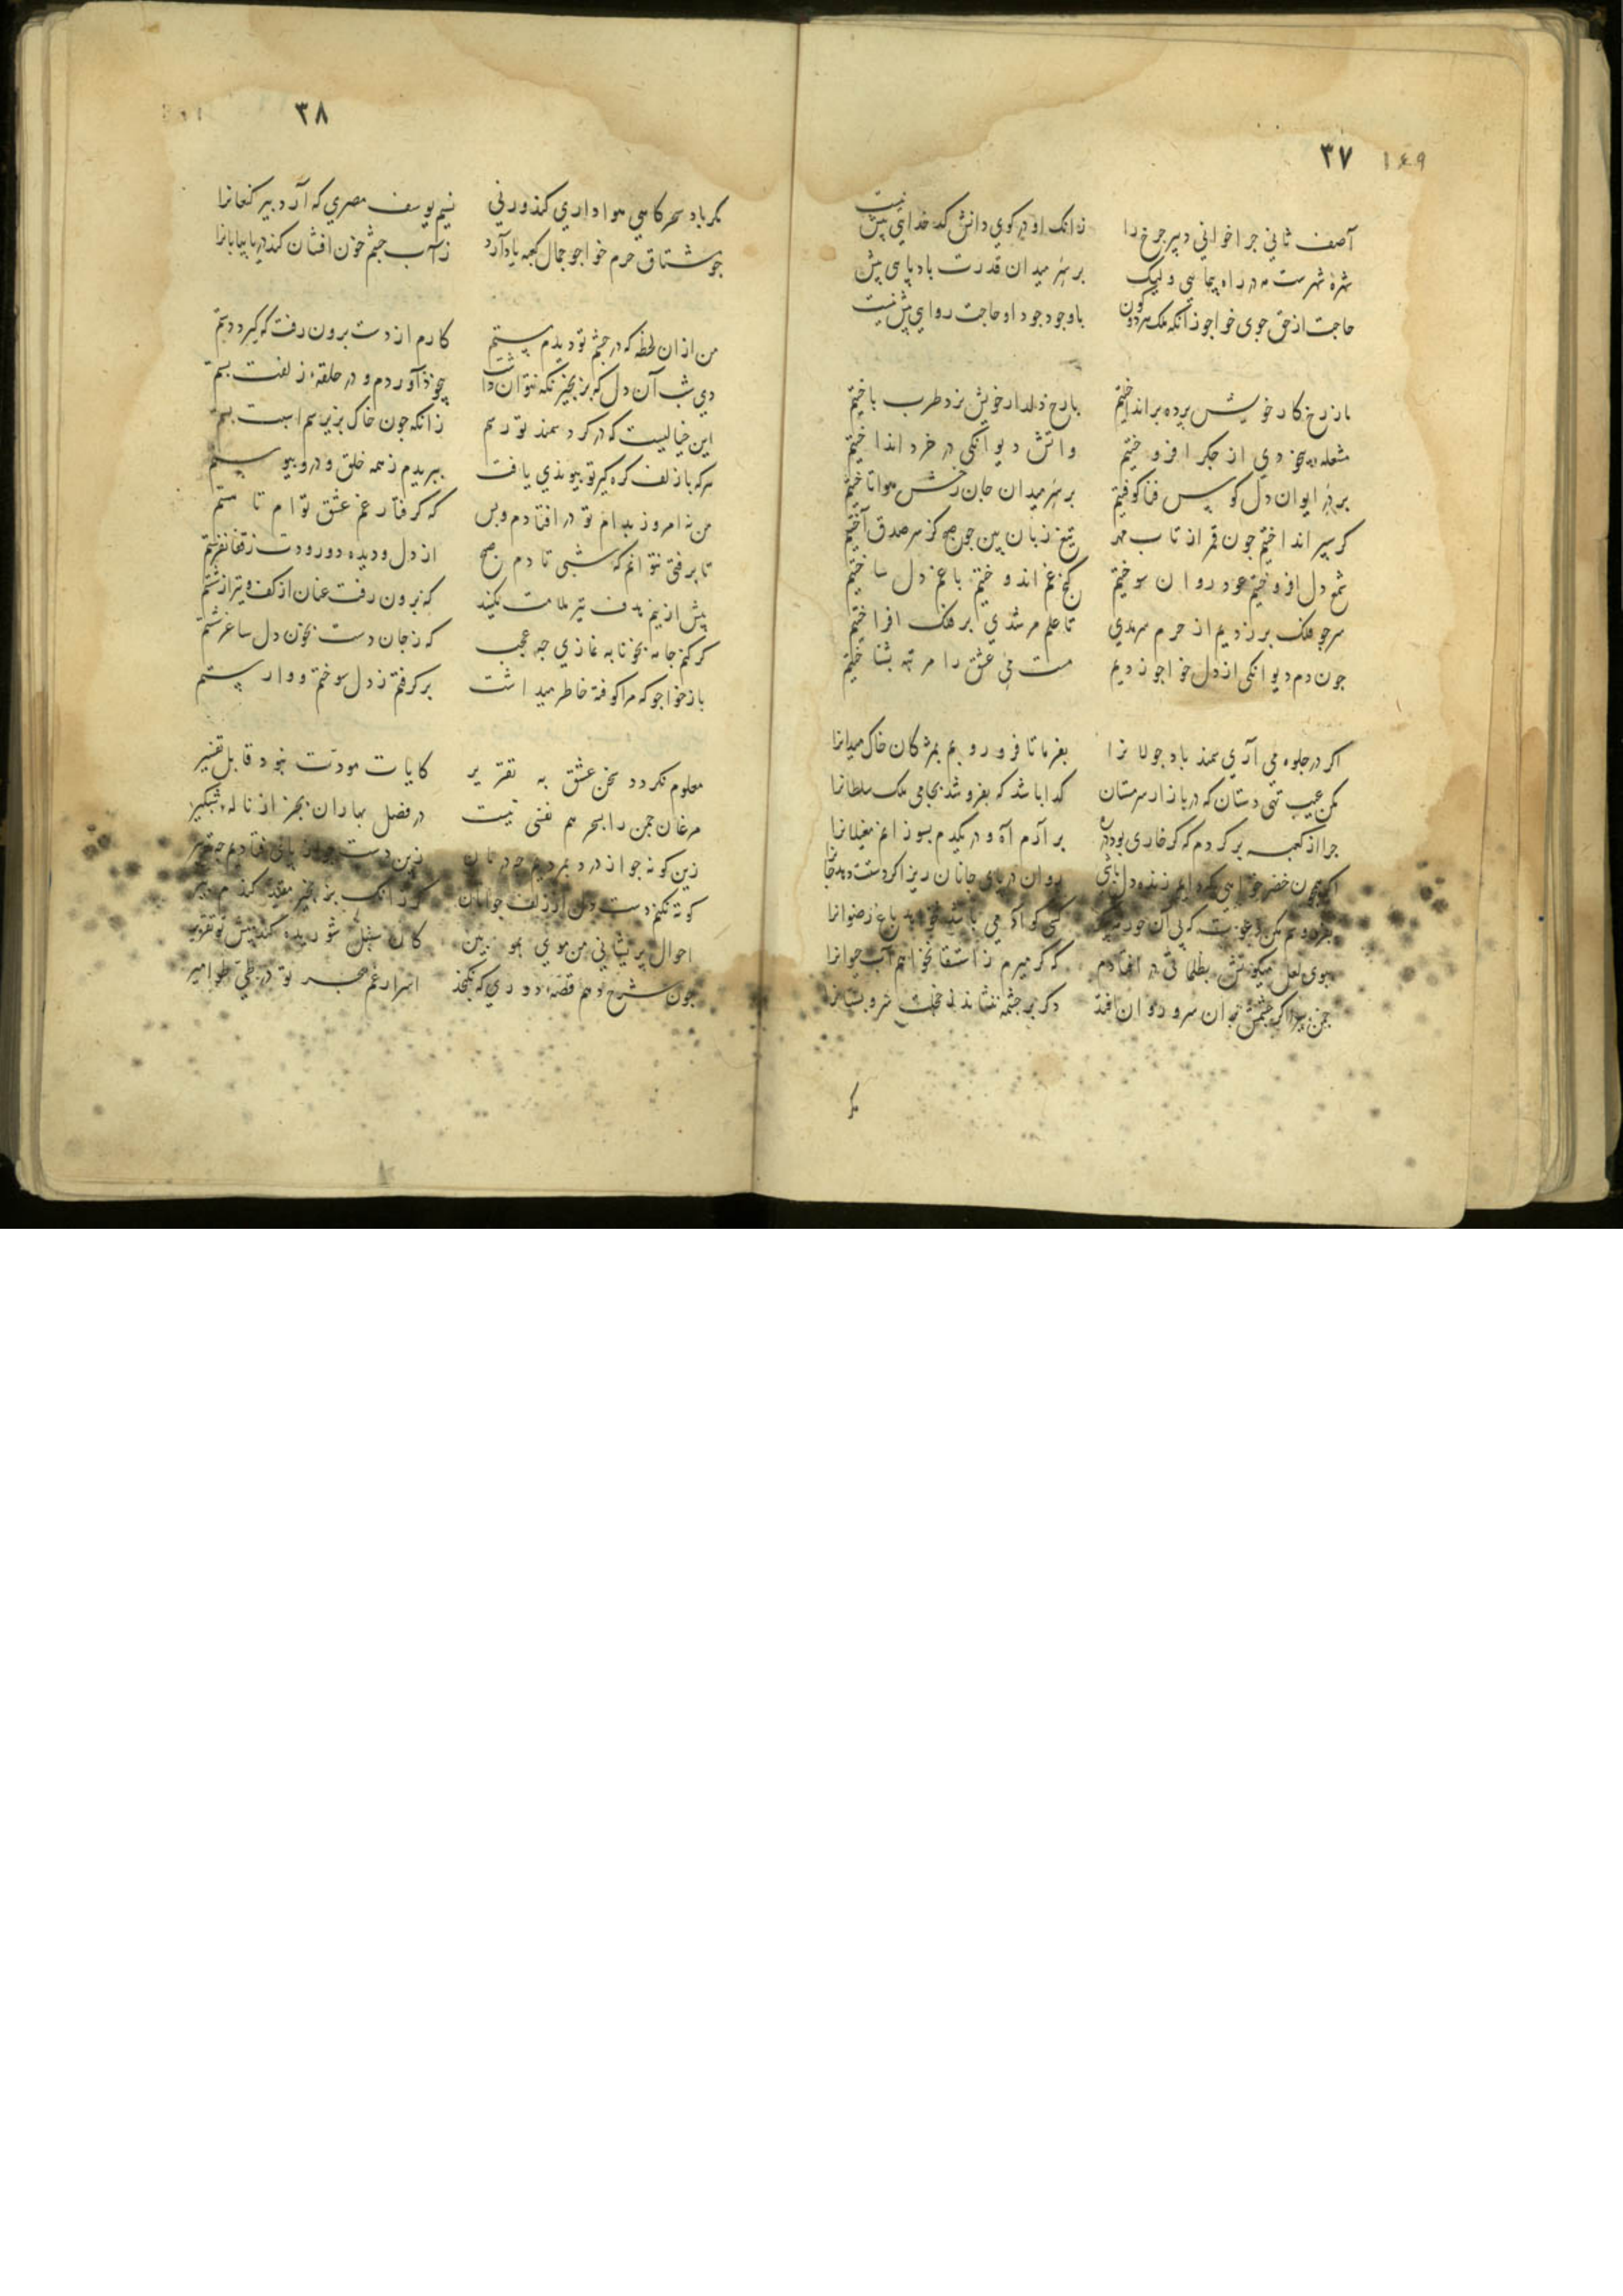 ۳۷ ۱۴۹
آصف ثاني جرا خواني دبير جرخ را زانک او در کوي دانش کدخدايي بيش نيست
شهرهٔ شهرست مه در راه پيمايي وليک بر سر ميدان قدرت بادپايي بيش نيست
حاجت از حق جوي خواجو زانکه ملک هر دو کون با وجود جود او حاجت روايي بيش نيست
ما ز رخ کار خويش برده برانداختيم با رخ دلدار خويش نرد طرب باختيم
مشعلهٔ بيخودي از جکر افروختيم واتش ديوانکي در خرد انداختيم
بر در ايوان دل کوس فنا کوفتيم بر سر ميدان جان رخش هوا تاختيم
کر سبر انداختيم جون قمر از تاب مهر تيغ زبان بين جو صبح کز سر صدق آختيم
شمع دل افروختيم عود روان سوختيم کنج غم اندوختيم با غم دل ساختيم
سر جو فلک برزديم از حرم سرمدي تا علم مرشدي بر فلک افراختيم
جون دم ديوانکي از دل خواجو زديم مست مي عشق را مرتبه بشناختيم
اکر در جلوه مي آري سمند باد جولانرا بفرما تا فرو روبم بمژکان خاک ميدانرا
مکن عيب تهي دستان که در بازار سرمستان کدا باشد که بفروشد بجامي ملک سلطانرا
جرا از کعبه برکردم که کر خاري بود در ره برآرم آه و در يکدم بسوزانم مغيلانرا
اکر همچون خضر خواهي که دايم زنده دل باشي روان در پاي جانان ريز اکر دستت دهد جانرا
بفردوسم مکن دعوت که بي آن حور کسي کو آدمي باشد نخواهد باغ رضوانرا
ببوي لعل ميکونش بظلماتي در افتادم که کر ميرم ز استسقا نخواهم آب حيوانرا
جمن بيرا اکر جشمش بر آن سرو روان افتد دکر بر جشمه ننشاند ز خجلت سرو بستانرا
مکر
۳۸
مکر باد سحرکاهي هواداري کند ورني نسيم يوسف مصري که آرد بير کنعانرا
جو مشتاق حرم خواجو جمال کعبه ياد آرد ز آب جشم خون افشان کند دريا بيابانرا
من از آن لحظه که در جشم تو ديدم مستم کارم از دست برون رفت که کيرد دستم
دي شب آن دل که بزنجير نکه نتوان داشت بيخود آوردم و در حلقهء زلفت بستم
اين خياليست که در کرد سمند تو رسم زانکه جون خاک بزير سم اسبت بستم
هر که با زلف کره کير تو پيوندي يافت ببريدم ز همه خلق و درو پيوستم
من نه امروز بدام تو در افتادم و بس که کرفتار غم عشق توام تا هستم
تا برفتي نتوانم که شبي تا دم صبح از دل و ديده دور و دت زفغان بنشستم
پيش ازينم هدف تير ملامت مکنيد که برون رفت عنان از کف و تير از شستم
کر کنم جامه بخونابه نمازي جه عجب که ز جان دست بخون دل ساغر شستم
باز خواجو که مرا کوفته خاطر ميداشت برکرفتم ز دل سوخته و وارستم
معلوم نکردد سخن عشق به تقرير کايات مودت نبود قابل تفسير
مرغان جمن را بسحر هم نفسي نيست در فصل بهاران بجز از نالهء شبکير
زين کونه جو از درد بمرديم جه درمان زين دست جو از پاي فتاديم جه تدبير
کوته نکنم دست دل از زلف جوانان کر زانک بزنجير مقيد کندم پير
احوال پريشاني من موي بمو بين کان سنبل شوريده کند پيش تو تقرير
جون شرح دهم قصهء دوري که نکنجد اسرار غم هجر تو در طي طوامير